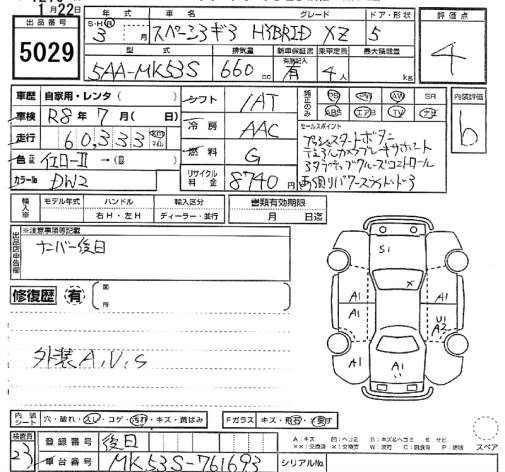 月22日
出品番号
5029
年式 車名 グレード ドア・形状
S・H・R 3年 月 スペーシアギア HYBRID XZ 5
型式 排気量 新車保証書 乗車定員 最大積載量
5AA-MK53S 660cc 有 4人 kg
評価点
4
車歴 自家用・レンタ( )
車検 R8年7月( 日)
走行 60,333
色 イエローII →( )
カラーNo DW2
シフト IAT
冷房 AAC
燃料 G
リサイクル料金 8740円
純正のみ PS PW AW SR
ABS エアB TV ナビ
セールスポイント
プッシュスタートボタン
内装評価
b
輸入車 モデル年式 ハンドル 輸入区分 書類有効期限
右H・左H ディーラー・並行 月 日迄
出品店申告欄 ※注意事項等記載
ナンバー後日
修復歴 有
箇所
外装 A、U、S
S1
X
A1 A1
A1 U1
A2
A1
A1
A1
内装シート 穴・破れ・スレ・コゲ・汚れ・キズ・黄ばみ Fガラス キズ・飛石
検査員
23
登録番号 後日
車台番号 MK53S-761693 シリアルNo.
A:キズ
スペア